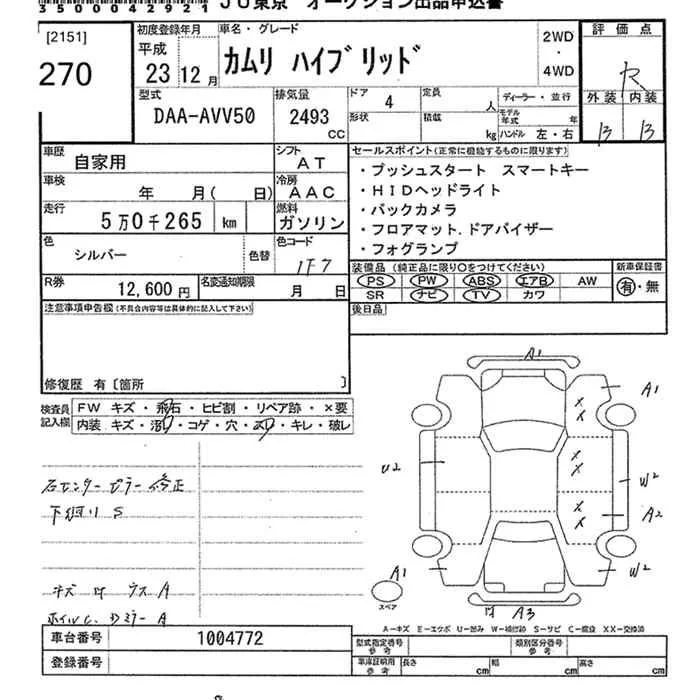 350004292１
ＪＵ東京 オークション出品申込書
[2151]
270
初度登録年月
平成
23 12月
車名・グレード
カムリ ハイブリッド
2WD
・
4WD
評価点
R
外装 内装
B B
型式
DAA-AVV50
排気量
2493
CC
ドア
4
形状
定員
人
積載
kg
ディーラー・並行
モデル年式
年
ハンドル 左・右
車歴
自家用
シフト
AT
車検
年 月( 日)
冷房
AAC
走行
5万0千265 km
燃料
ガソリン
色
シルバー
色替
色コード
1F7
R券
12,600円
名変通知期限
月 日
セールスポイント(正常に機能するものに限ります)
・プッシュスタート スマートキー
・HIDヘッドライト
・バックカメラ
・フロアマット.ドアバイザー
・フォグランプ
装備品 (純正品に限り○をつけてください)
PS PW ABS エアB AW
SR ナビ TV カワ
新車保証書
有・無
後日品
注意事項申告欄(不具合内容等は具体的に記入して下さい)
修復歴 有〔箇所 〕
検査員
記入欄
FW キズ・飛石・ヒビ割・リペア跡・×要
内装 キズ・・コゲ・穴・・キレ・破レ
右センターピラー修正
S
キズ ウス A
ホイルC. Dミラー A
A1
A1
U2
W2
A2
W2
A1
スペア
A3
A－キズ E－エクボ U－凹み W－補修跡 S－サビ C－腐蝕 XX－交換済
車台番号 1004772
登録番号
型式指定番号
参考
類別区分番号
参考
車庫証明用
参考
長さ cm 幅 cm 高さ cm